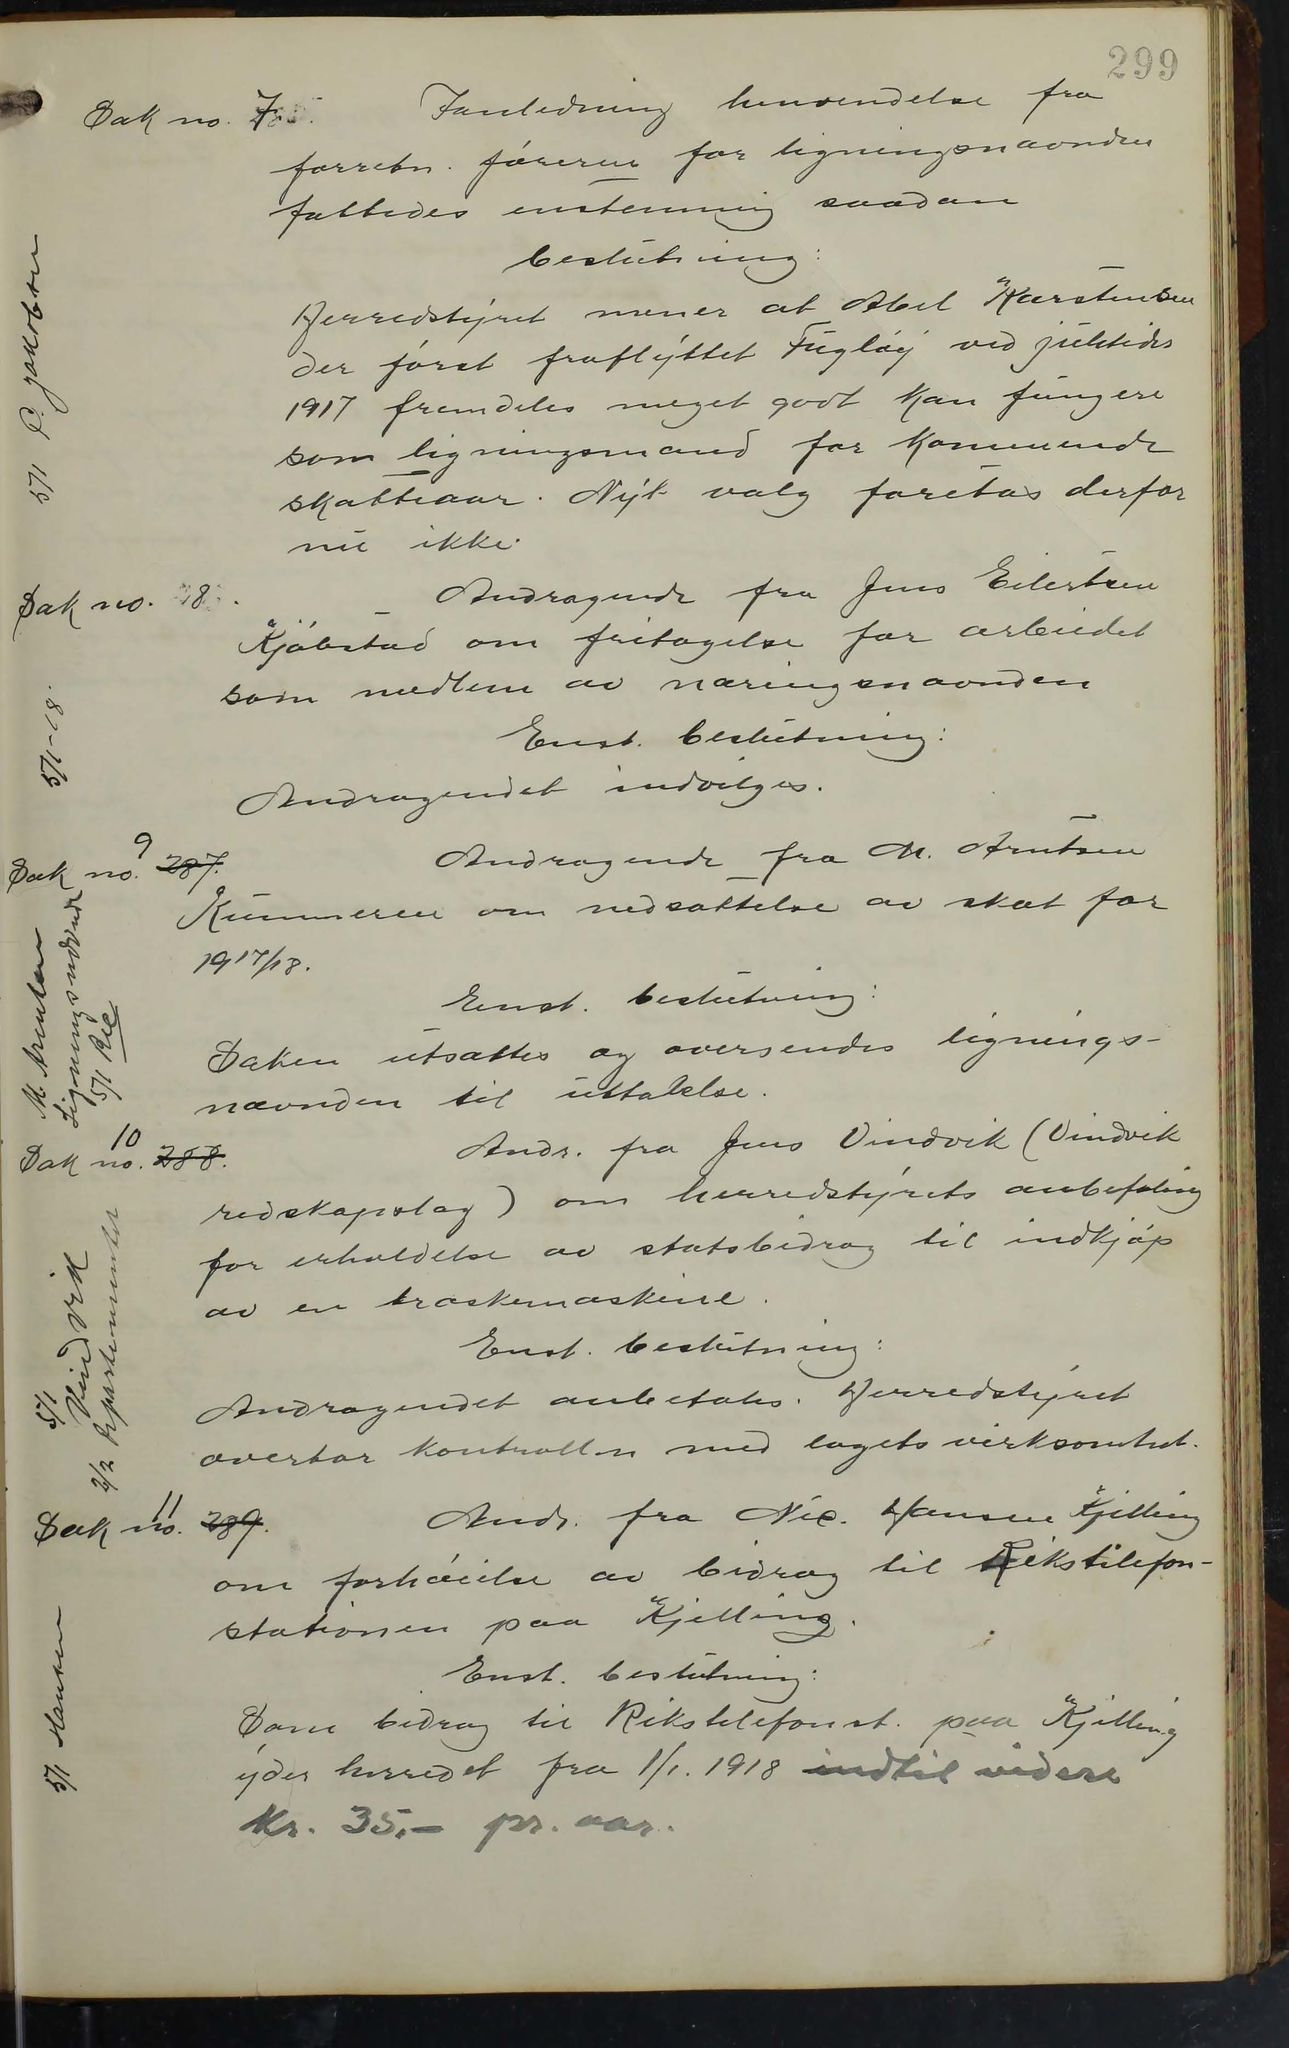 299
Sak no. 7. Ianledning henvendelse fra
forretn. föreren for ligningsnævnden
fattedes enstemmig saadan
beslutning:
Herredstyret mener at Abel Karstensen
der först fraflyttet Fugløy ved juletider
1917 fremdeles meget godt kan fungere
som ligningsmand for kommende
skatteaar. Nyt valg foretas derfor
nu ikke.
5/1 P. Jakobsen
Sak no. 8. Andragende fra Jens Eilertsen
Kjöbstad om fritagelse for arbeidet
som medlem av næringsnævnden
Enst. beslutning:
Andragendet indvilges.
5/1-18.
Sak no. 9 287. Andragende fra M. Arntsen
Kummeren om nedsættelse av skat for
1917/18.
Enst. beslutning:
Saken utsættes og oversendes lignings-
nævnden til uttalelse.
M. Arntsen
Ligningsnævnde
5/1
Sak no. 10 288. Andr. fra Jens Vindvik (Vindvik
redskapslag) om herredstyrets anbefaling
for erholdelse av statsbidrag til indkjöp
av en træskemaskine.
Enst. beslutning:
Andragendet anbefales. Herredstyret
overtar kontrollen med lagets virksomhet.
5/1
Vindvik
2/2 Departementet
Sak no. 11 289. Andr. fra Nic. Hansen Kjelling
om forhöielse av bidrag til Rikstelefon-
stationen paa Kjelling.
Enst. beslutning:
Som bidrag til Rikstelefonst. paa Kjelling
yder herredet fra 1/1. 1918 indtil videre
kr. 35,- pr. aar.
5/1 Hansen